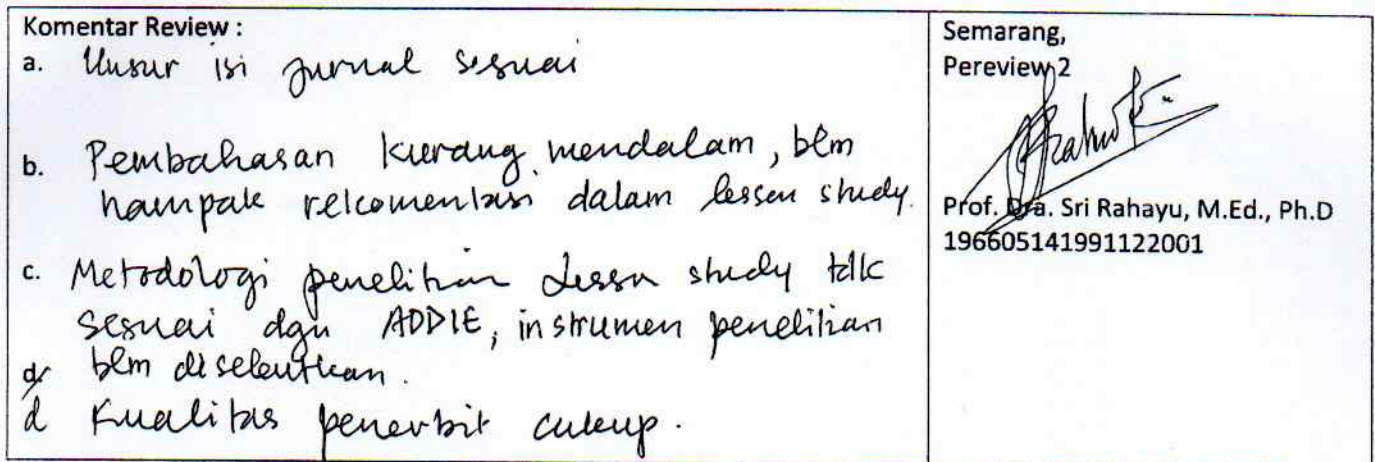 Komentar Review :
a. Unsur isi jurnal sesuai
b. Pembahasan kurang mendalam, blm
nampak rekomentasi dalam lesson study.
c. Metodologi penelitian Lesson study tdk
sesuai dgn ADDIE, instrumen penelitian
d. blm disebutkan.
d Kualitas penerbit cukup.
Semarang,
Pereview 2
Prof. Dra. Sri Rahayu, M.Ed., Ph.D
196605141991122001